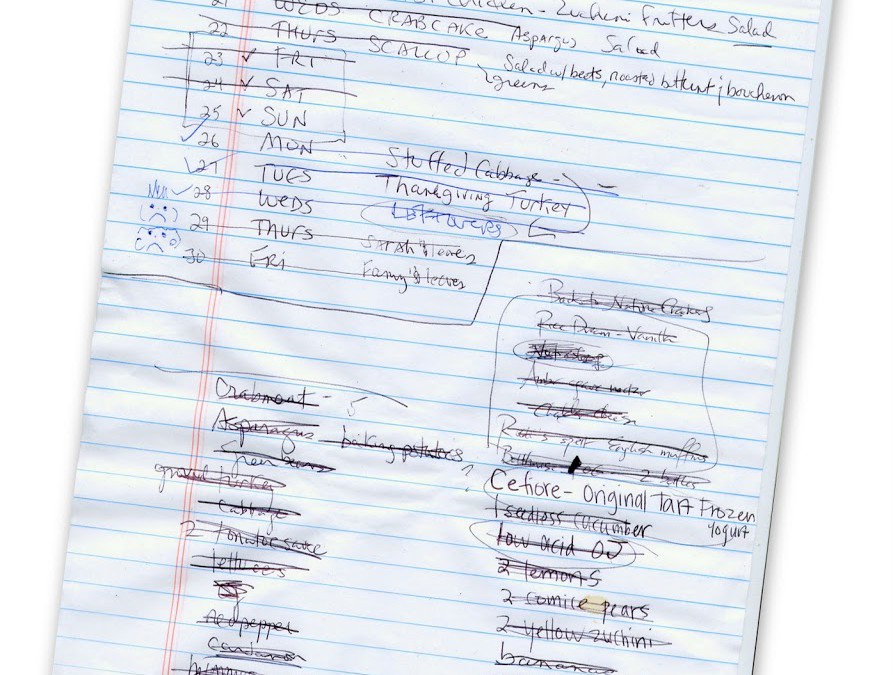 21 WEDS CRABCAKE Chicken - Zucheni Fritters Salad
22 THURS SCALLOP Asparagus Salad
23 ✓ FRI Salad w/ beets, roasted butternut
24 ✓ SAT greens
25 ✓ SUN
26 MON Stuffed Cabbage
27 TUES Thanksgiving Turkey
28 WEDS Leftovers
29 THURS Sarah leaves
30 FRI Fanny leaves
Back to Nature
Rice Dream - Vanilla
english muffins
2 bottles
Crabmeat - 5
Asparagus baking potatoes
green beans
ground turkey
Cabbage
2 Tomatoe sauce
lettuces
Red pepper
?
Cefiore - Original Tart Frozen
Yogurt
1 seedless cucumber
low acid OJ
2 lemons
2 comice pears
2 yellow zuchini
bananas